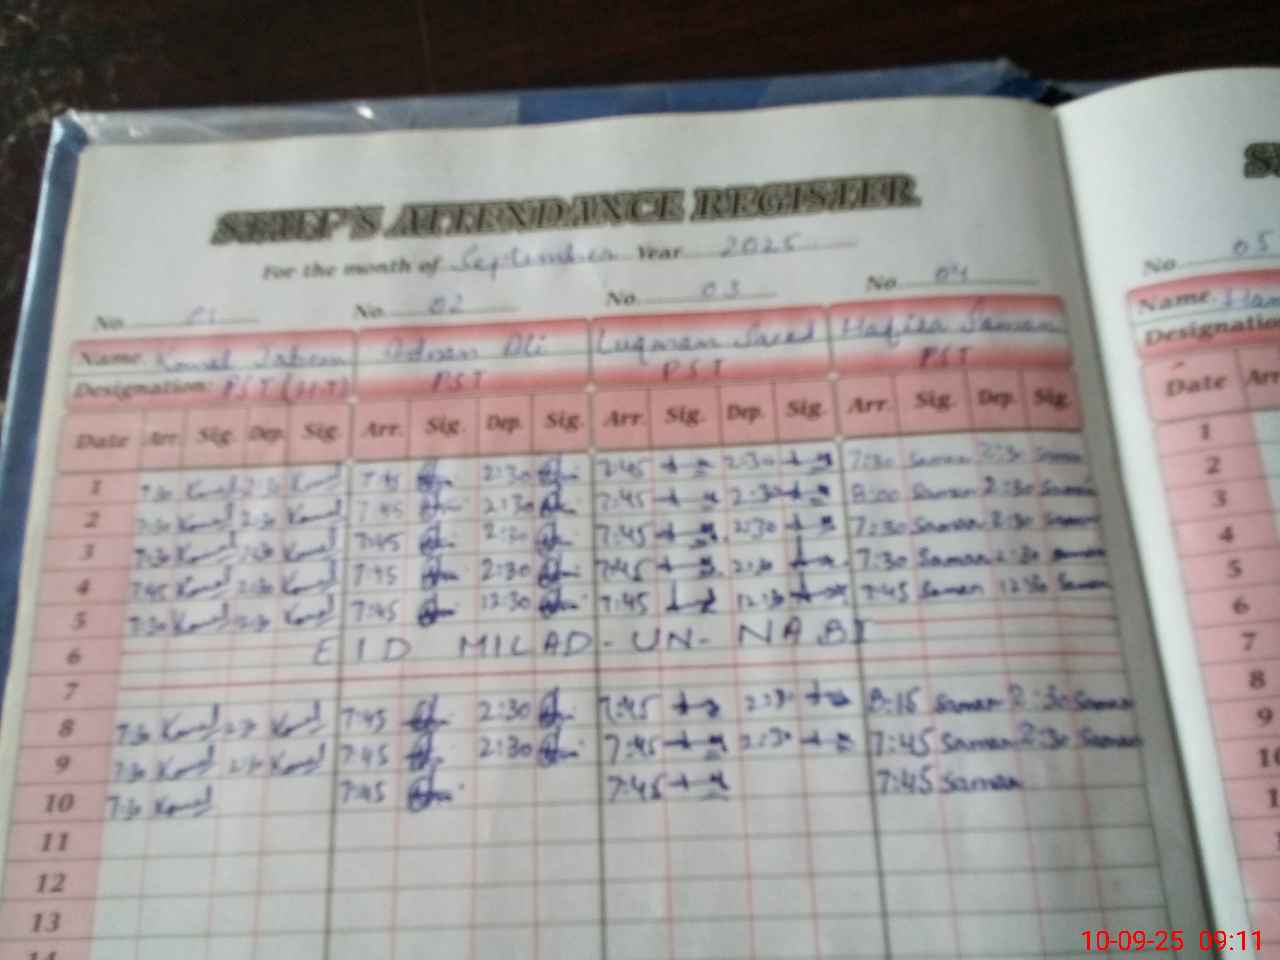 STAFF'S ATTENDANCE REGISTER
For the month of September Year 2025
No. 01 No. 02 No. 03 No. 04
Name. Komal Adnan Ali Luqman Saeed Hafiza Saman
Designation: PST PST PST PST
Date Arr. Sig. Dep. Sig. Arr. Sig. Dep. Sig. Arr. Sig. Dep. Sig. Arr. Sig. Dep. Sig.
1 7:30 Komal 2:30 Komal 7:45 2:30 7:45 2:30 7:30 Saman 2:30 Saman
2 7:30 Komal 2:30 Komal 7:45 2:30 7:45 2:30 8:00 Saman 2:30 Saman
3 7:30 Komal 2:30 Komal 7:45 2:30 7:45 2:30 7:30 Saman 2:30 Saman
4 7:45 Komal 2:30 Komal 7:45 2:30 7:45 2:30 7:30 Saman 2:30 Saman
5 7:30 Komal 12:30 Komal 7:45 12:30 7:45 12:30 7:45 Saman 12:30 Saman
6 EID MILAD-UN-NABI
7
8 7:30 Komal 2:30 Komal 7:45 2:30 7:45 2:30 8:15 Saman 2:30 Saman
9 7:30 Komal 2:30 Komal 7:45 2:30 7:45 2:30 7:45 Saman 2:30 Saman
10 7:30 Komal 7:45 7:45 7:45 Saman
11
12
13
14
No. 05
Name.
Designation
Date Arr
1
2
3
4
5
6
7
8
9
10-09-25 09:11